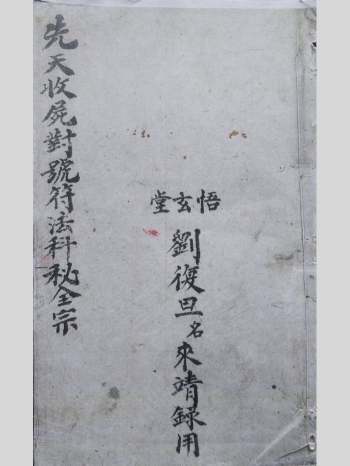 悟玄堂
劉復旦名來靖錄用
先天收屍對號符法科秘全宗